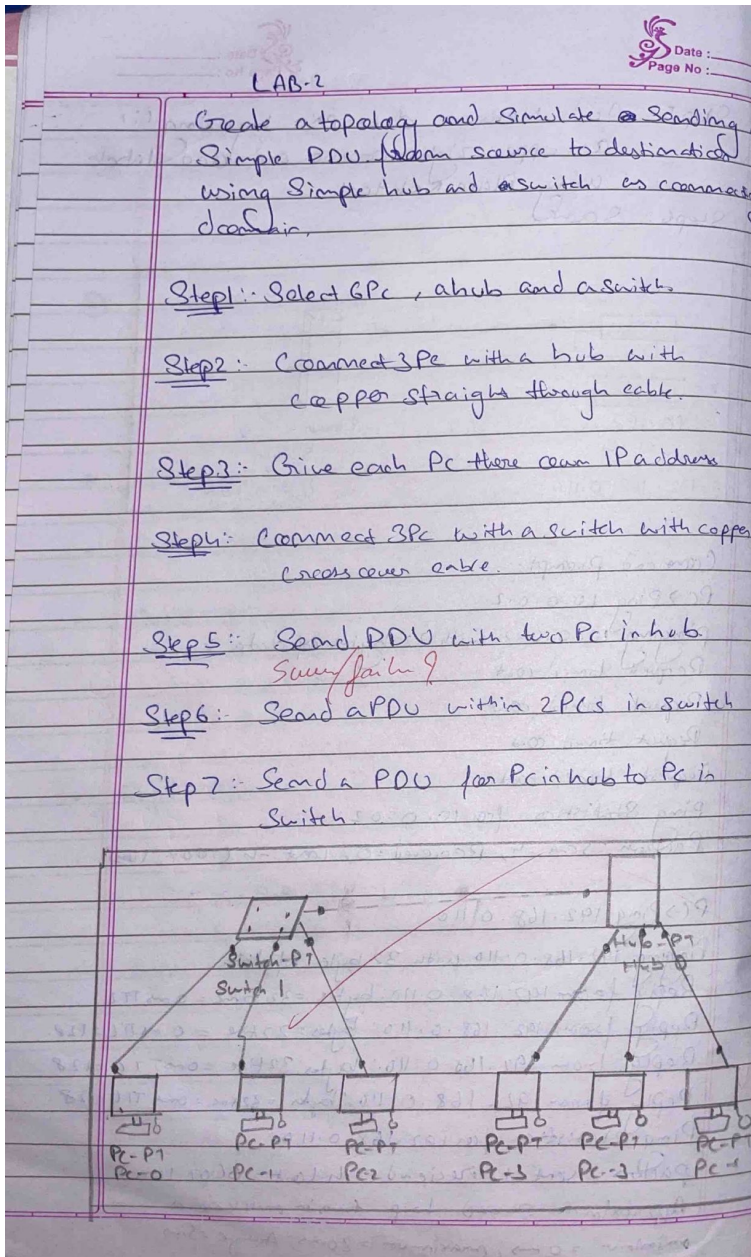 Date :
Page No :
LAB-2
Create a topology and Simulate Sending
Simple PDU from source to destination
using Simple hub and a switch as
domain.
Step1:- Select 6Pc, a hub and a switch.
Step2:- Connect 3Pc with a hub with
copper straight through cable.
Step3:- Give each Pc there own IP address
Step4:- Connect 3Pc with a switch with copper
cross cover cable.
Step5:- Send PDU with two Pc in hub.
Step6:- Send a PDU within 2PCs in switch
Step7:- Send a PDU for Pc in hub to Pc in
Switch
Switch-PT
Switch 1
Hub-PT
Hub 0
PC-PT PC-PT PC-PT PC-PT PC-PT PC-PT
PC-0 PC-1 PC-2 PC-3 PC-3